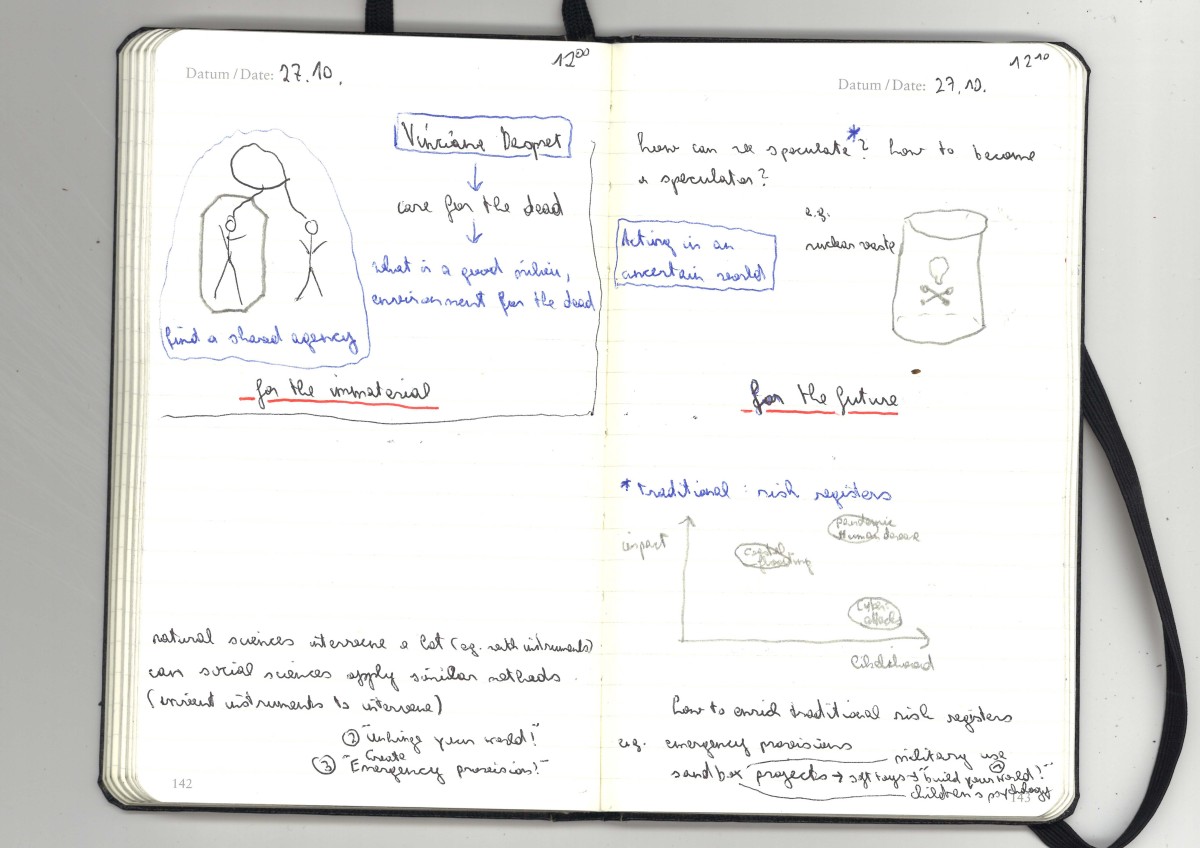 12⁰⁰
Datum / Date: 27.10.
Vinciane Despret
care for the dead
what is a good milieu,
environment for the dead
find a shared agency
for the immaterial
natural sciences intervene a lot (eg. with instruments)
can social sciences apply similar methods
(invent instruments to intervene)
② "Unhinge your world!"
③ "Create Emergency provision!"
142
12¹⁰
Datum / Date: 27.10.
how can we speculate*? how to become
a speculator?
e.g.
nuclear waste
Acting in an
uncertain world
for the future
* traditional: risk registers
impact
pandemic
Human disease
coastal
flooding
Cyber-
attacks
likelihood
how to enrich traditional risk registers
e.g. emergency provisions
military use
sandbox projects → soft toys → "build your world!"
children's psychology
143